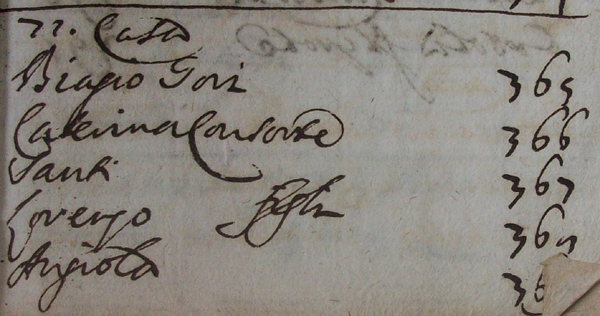 77. Casa
Biagio Gori 365
Caterina Consorte 366
Santi 367
Lorenzo Figli 368
Angiola 36